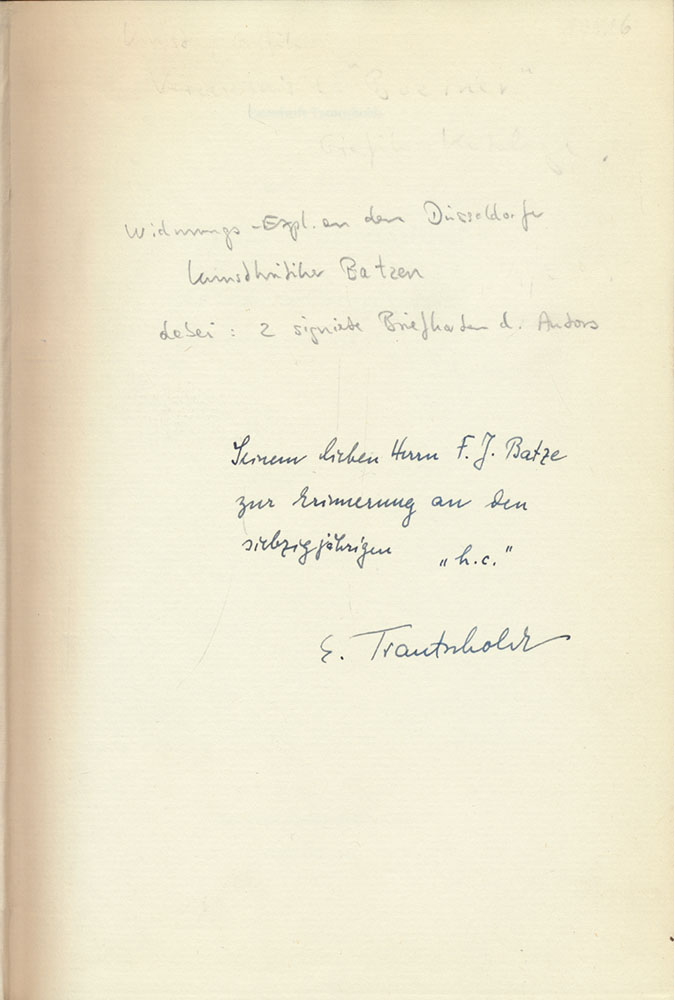 "Boerner"
Widmungs-Expl. an den Düsseldorfer
Kunstkritiker Batzen
dabei: 2 signierte Briefkarten d. Autors
Seinem lieben Herrn F. J. Batze
zur Erinnerung an den
siebzigjährigen „h.c."
E. Trautscholdt